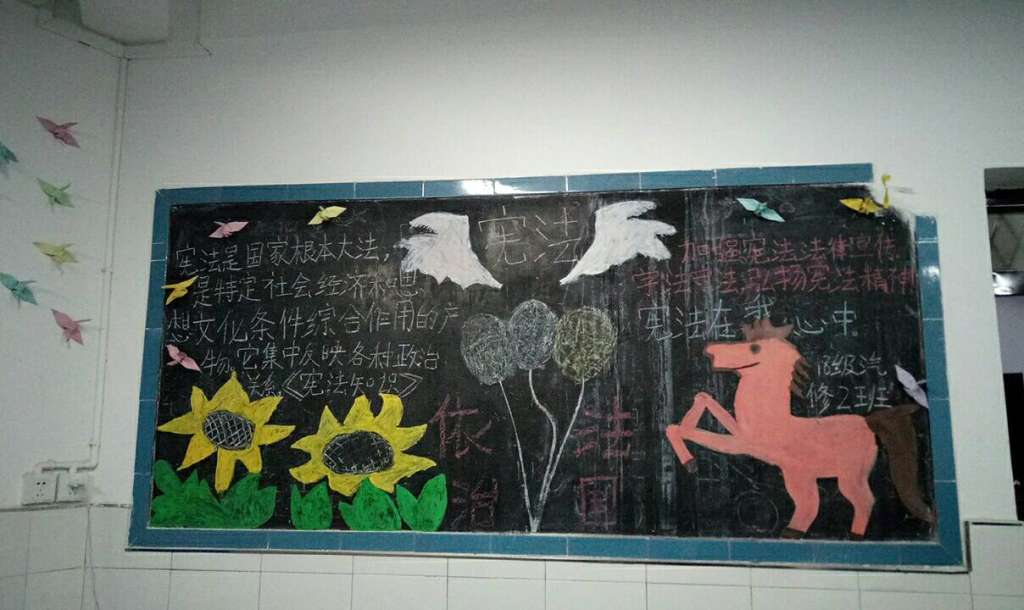 宪法
宪法是国家根本大法，
是特定社会经济和思
想文化条件综合作用的产
物，它集中反映各种政治
关系《宪法知识》
加强宪法法律宣传
学法守法弘扬宪法精神
宪法在我心中
18级汽
修2班
依法
治国